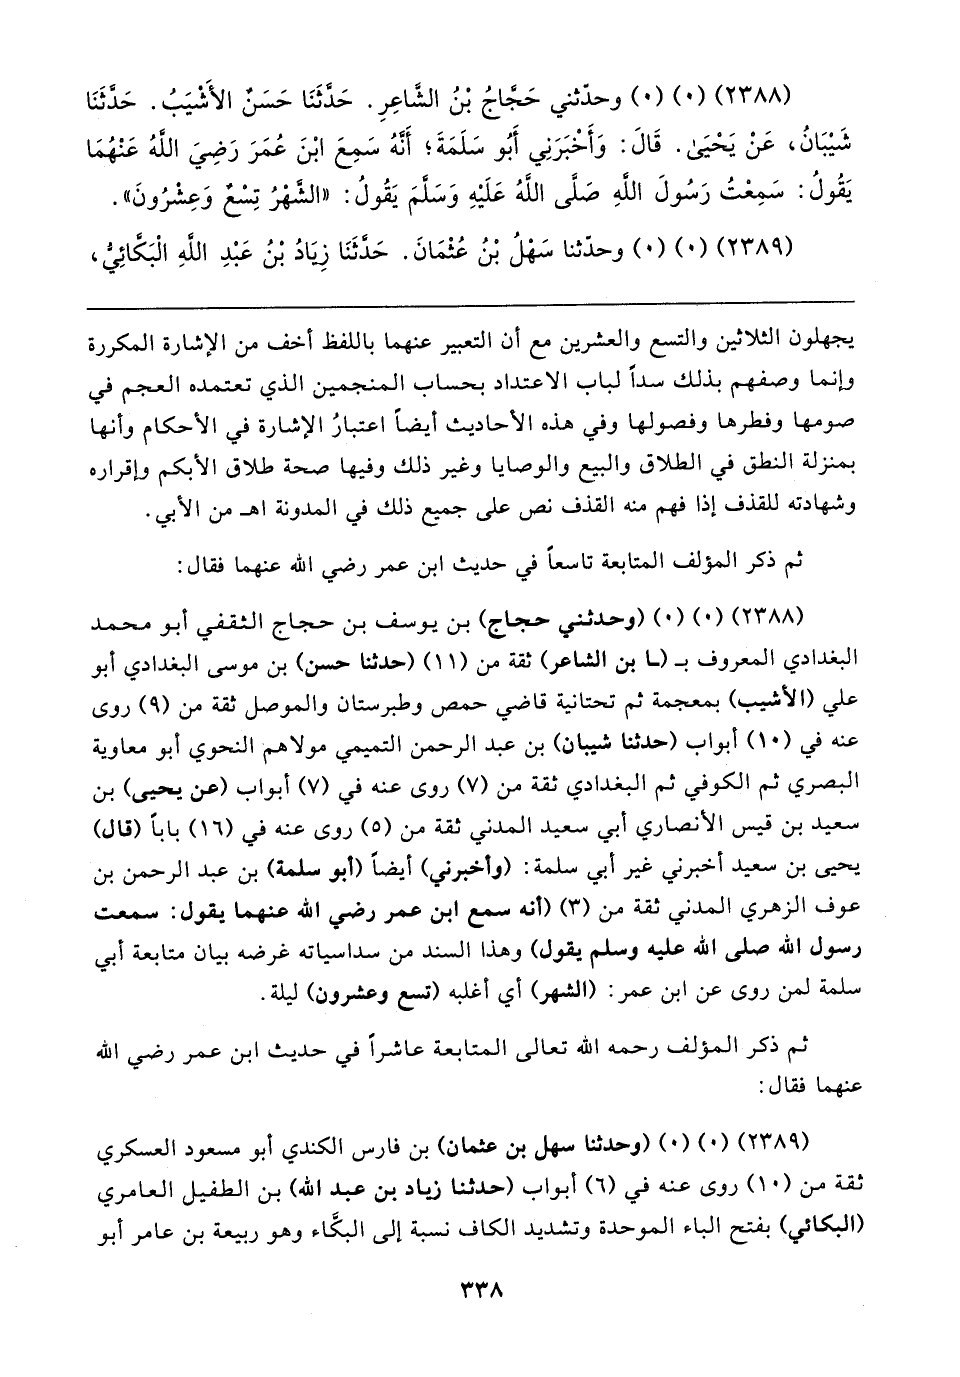 (٢٣٨٨) (٠) (٠) وحدّثني حَجَّاجُ بْنُ الشَّاعِرِ. حَدَّثَنَا حَسَنٌ الأَشْيَبُ. حَدَّثَنَا
شَيْبَانُ، عَنْ يَحْيَىٰ. قَالَ: وَأَخْبَرَنِي أَبُو سَلَمَةَ؛ أَنَّهُ سَمِعَ ابْنَ عُمَرَ رَضِيَ اللَّهُ عَنْهُمَا
يَقُولُ: سَمِعْتُ رَسُولَ اللَّهِ صَلَّى اللَّهُ عَلَيْهِ وَسَلَّمَ يَقُولُ: «الشَّهْرُ تِسْعٌ وَعِشْرُونَ».
(٢٣٨٩) (٠) (٠) وحدّثنا سَهْلُ بْنُ عُثْمَانَ. حَدَّثَنَا زِيَادُ بْنُ عَبْدِ اللَّهِ الْبَكَّائِيُّ،
يجهلون الثلاثين والتسع والعشرين مع أن التعبير عنهما باللفظ أخف من الإشارة المكررة
وإنما وصفهم بذلك سداً لباب الاعتداد بحساب المنجمين الذي تعتمده العجم في
صومها وفطرها وفصولها وفي هذه الأحاديث أيضاً اعتبارُ الإشارة في الأحكام وأنها
بمنزلة النطق في الطلاق والبيع والوصايا وغير ذلك وفيها صحة طلاق الأبكم وإقراره
وشهادته للقذف إذا فهم منه القذف نص على جميع ذلك في المدونة اهـ من الأبي.
ثم ذكر المؤلف المتابعة تاسعاً في حديث ابن عمر رضي الله عنهما فقال:
(٢٣٨٨) (٠) (٠) (وحدثني حجاج) بن يوسف بن حجاج الثقفي أبو محمد
البغدادي المعروف بـ (ـا بن الشاعر) ثقة من (١١) (حدثنا حسن) بن موسى البغدادي أبو
علي (الأشيب) بمعجمة ثم تحتانية قاضي حمص وطبرستان والموصل ثقة من (٩) روى
عنه في (١٠) أبواب (حدثنا شيبان) بن عبد الرحمن التميمي مولاهم النحوي أبو معاوية
البصري ثم الكوفي ثم البغدادي ثقة من (٧) روى عنه في (٧) أبواب (عن يحيى) بن
سعيد بن قيس الأنصاري أبي سعيد المدني ثقة من (٥) روى عنه في (١٦) باباً (قال)
يحيى بن سعيد أخبرني غير أبي سلمة: (وأخبرني) أيضاً (أبو سلمة) بن عبد الرحمن بن
عوف الزهري المدني ثقة من (٣) (أنه سمع ابن عمر رضي الله عنهما يقول: سمعت
رسول الله صلى الله عليه وسلم يقول) وهذا السند من سداسياته غرضه بيان متابعة أبي
سلمة لمن روى عن ابن عمر: (الشهر) أي أغلبه (تسع وعشرون) ليلة.
ثم ذكر المؤلف رحمه الله تعالى المتابعة عاشراً في حديث ابن عمر رضي الله
عنهما فقال:
(٢٣٨٩) (٠) (٠) (وحدثنا سهل بن عثمان) بن فارس الكندي أبو مسعود العسكري
ثقة من (١٠) روى عنه في (٦) أبواب (حدثنا زياد بن عبد الله) بن الطفيل العامري
(البكائي) بفتح الباء الموحدة وتشديد الكاف نسبة إلى البكَّاء وهو ربيعة بن عامر أبو
٣٣٨